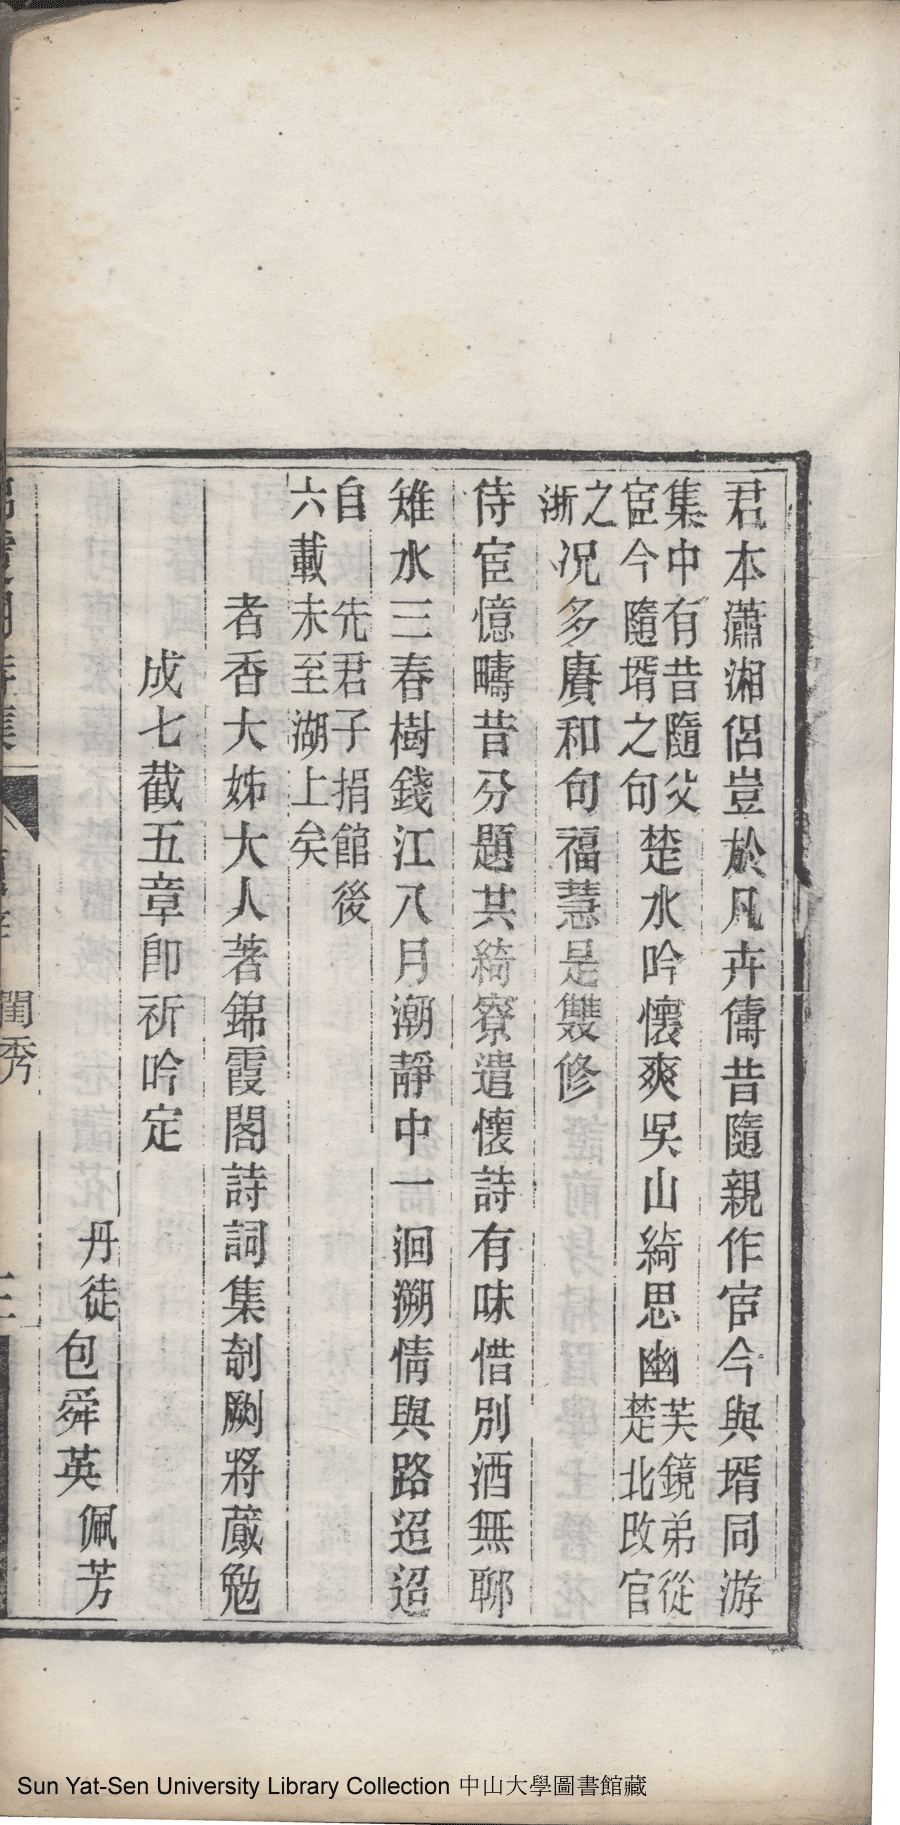 君本瀟湘侶豈於凡卉儔昔隨親作宦今與壻同游
集中有昔隨父
宦今隨壻之句
楚水吟懷爽吳山綺思幽
芙鏡弟從
楚北改官
之
浙
況多賡和句福慧是雙修
侍宦憶疇昔分題共綺寮遣懷詩有味惜別酒無聊
雉水三春樹錢江八月潮靜中一洄溯情與路迢迢
自先君子捐館後
六載未至湖上矣
者香大姊大人著錦霞閣詩詞集剞劂將蕆勉
成七截五章卽祈吟定
丹徒包舜英佩芳
閨秀
Sun Yat-Sen University Library Collection 中山大學圖書館藏